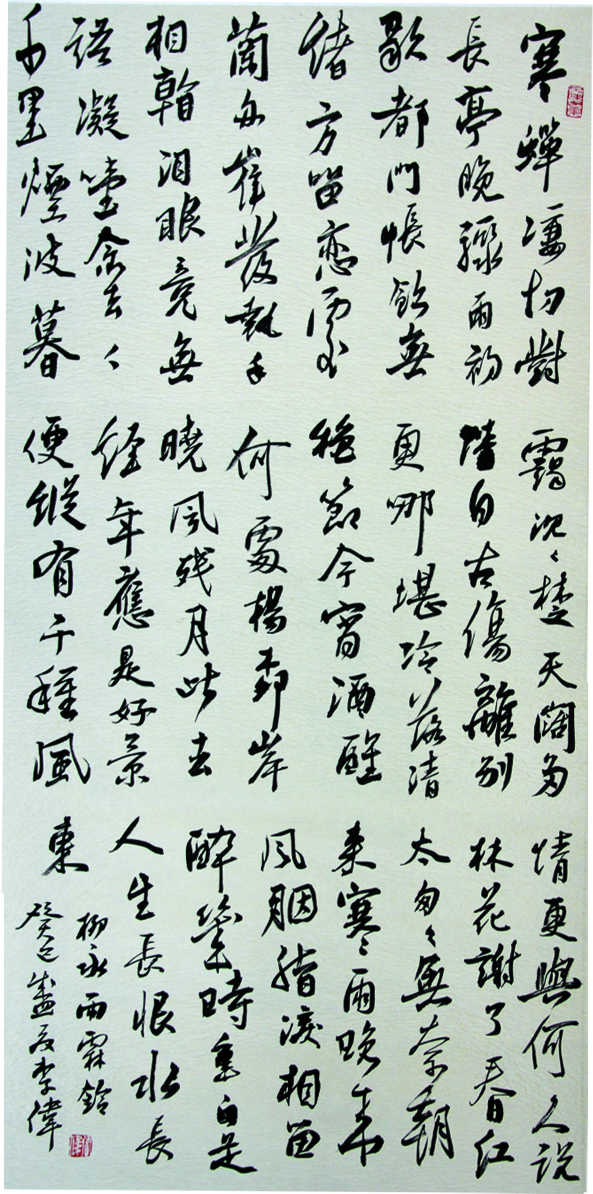 寒蟬淒切對
長亭晚驟雨初
歇都門帳飲無
緒方留戀處
蘭舟催發執手
相看泪眼竟無
語凝噎念去々
千里煙波暮
靄沉々楚天闊多
情自古傷離別
更哪堪冷落清
秋節今宵酒醒
何處楊柳岸
曉風残月此去
經年應是好景
便縱有千種風
情更與何人説
林花謝了春紅
太匆々無奈朝
來寒雨晚來
風胭脂淚相留
醉幾時重自是
人生長恨水長
東
柳永雨霖鈴
癸巳盛夏李偉